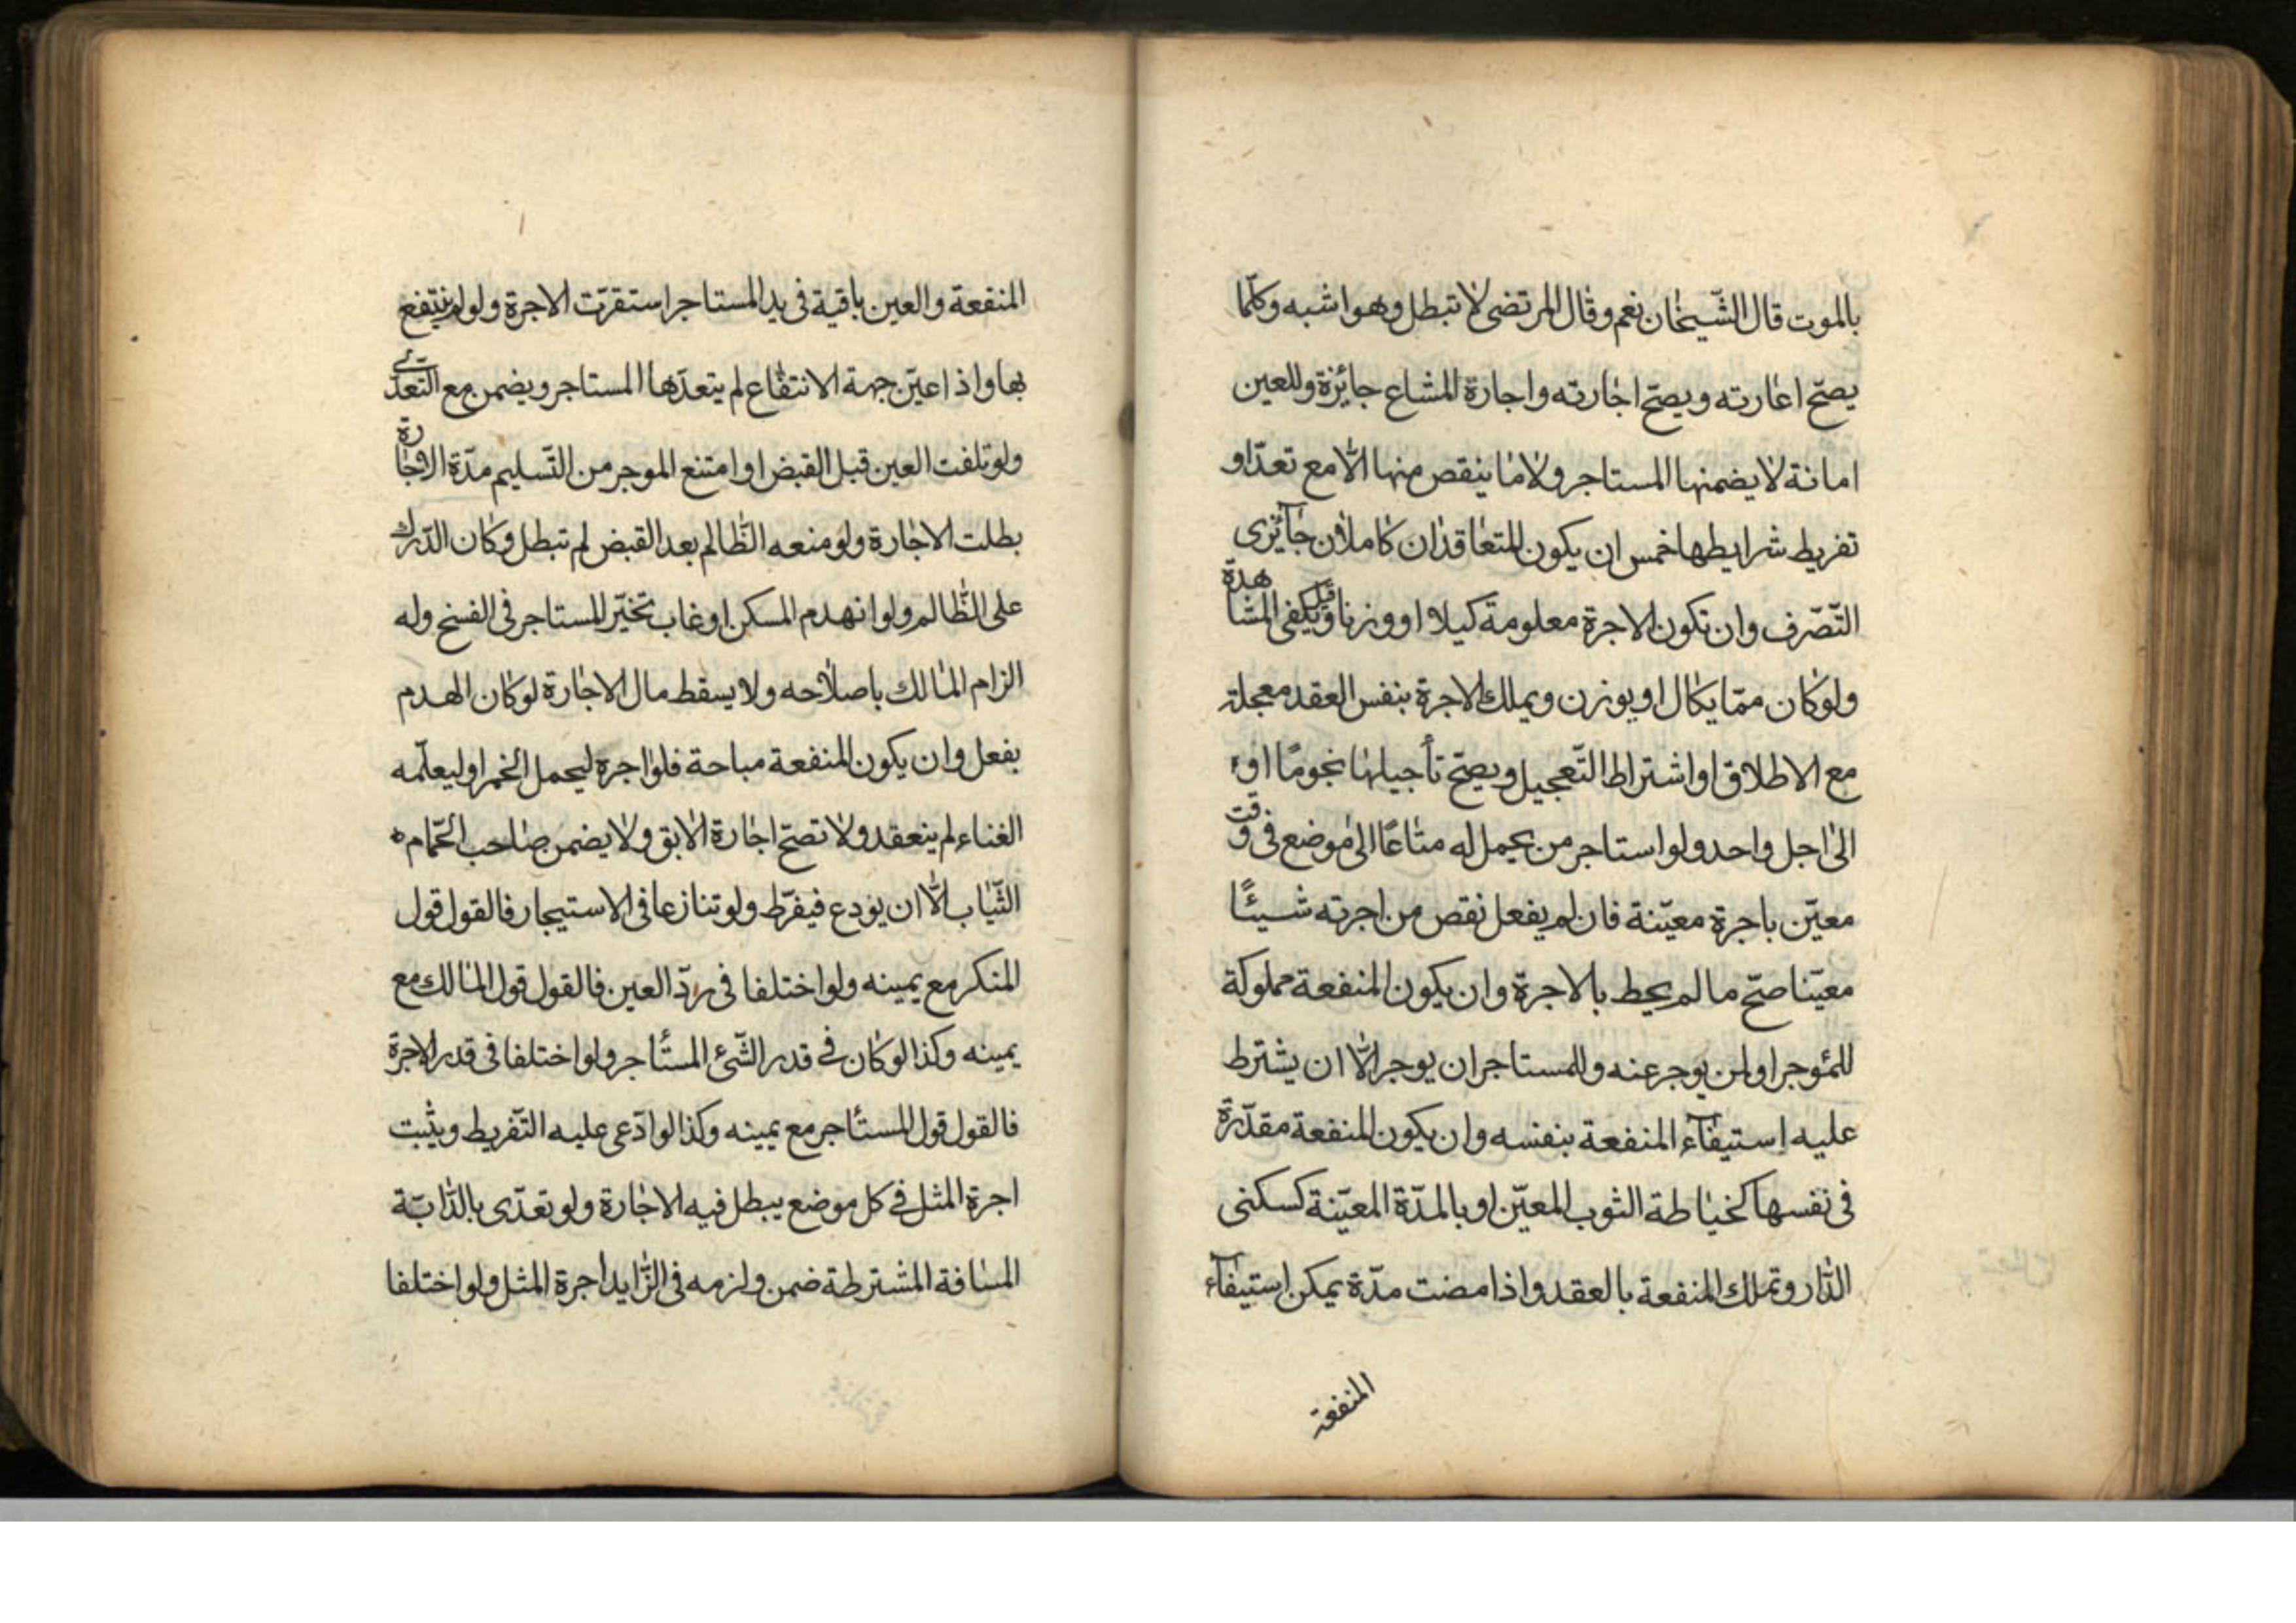 بالموت قال الشّيخان نعم وقال المرتضى لا تبطل وهو اشبه وكلّما
يصحّ اعارته ويصحّ اجارته واجارة المشاع جائزة وللعين
امانة لا يضمنها المستاجر ولا ما ينقص منها الّا مع تعدّ او
تفريط شرايطها خمس ان يكون المتعاقدان كاملان جآئزى
التّصّرف وان تكون الاجرة معلومة كيلا او وزنا وقيل يكفى المشاهدة
ولو كان ممّا يكال او يوزن ويملك الاجرة بنفس العقد معجلة
مع الاطلاق او اشتراط التّعجيل ويصحّ تأجيلها نجومًا او
الى اجل واحد ولو استاجر من يحمل له متاعًا الى موضع فى وقت
معيّن باجرة معيّنة فان لم يفعل نقص من اجرته شيئًا
معيّنا صحّ ما لم يحط بالاجرة وان يكون المنفعة مملوكة
للمؤجر او لمن يوجر عنه وللمستاجر ان يوجر الّا ان يشترط
عليه إستيفآء المنفعة بنفسه وان يكون المنفعة مقدّرة
فى نفسها كخياطة الثوب المعيّن او بالمدّة المعيّنة كسكنى
الدّار وتملك المنفعة بالعقد واذا مضت مدّة يمكن إستيفآء
المنفعة
المنفعة والعين باقية فى يد المستاجر استقرّت الاجرة ولو لم ينتفع
بها واذا عيّن جهة الانتفاع لم يتعدّها المستاجر ويضمن مع التّعدّى
ولو تلفت العين قبل القبض او امتنع الموجر من التّسليم مدّة الاجارة
بطلت الاجارة ولو منعه الظّالم بعد القبض لم تبطل وكان الدّرك
على الظّالم ولو انهدم المسكن او غاب تخيّر المستاجر فى الفسخ وله
الزام المالك باصلاحه ولا يسقط مال الاجارة لو كان الهدم
بفعل وان يكون المنفعة مباحة فلو اجره ليحمل الخمر او ليعلّمه
الغناء لم ينعقد ولا تصحّ اجارة الآبق ولا يضمن صاحب الحّمام
الثّياب الّا ان يودع فيفرّط ولو تنازعا فى الاستيجار فالقول قول
المنكر مع يمينه ولو اختلفا فى ردّ العين فالقول قول المالك مع
يمينه وكذا لو كان فى قدر الشّئ المستأجر ولو اختلفا فى قدر الاجرة
فالقول قول المستأجر مع يمينه وكذا لو ادّعى عليه التّفريط ويثبت
اجرة المثل فى كل موضع يبطل فيه الاجارة ولو تعدّى بالدّابّة
المسافة المشترطة ضمن ولزمه فى الزّايد اجرة المثل ولو اختلفا